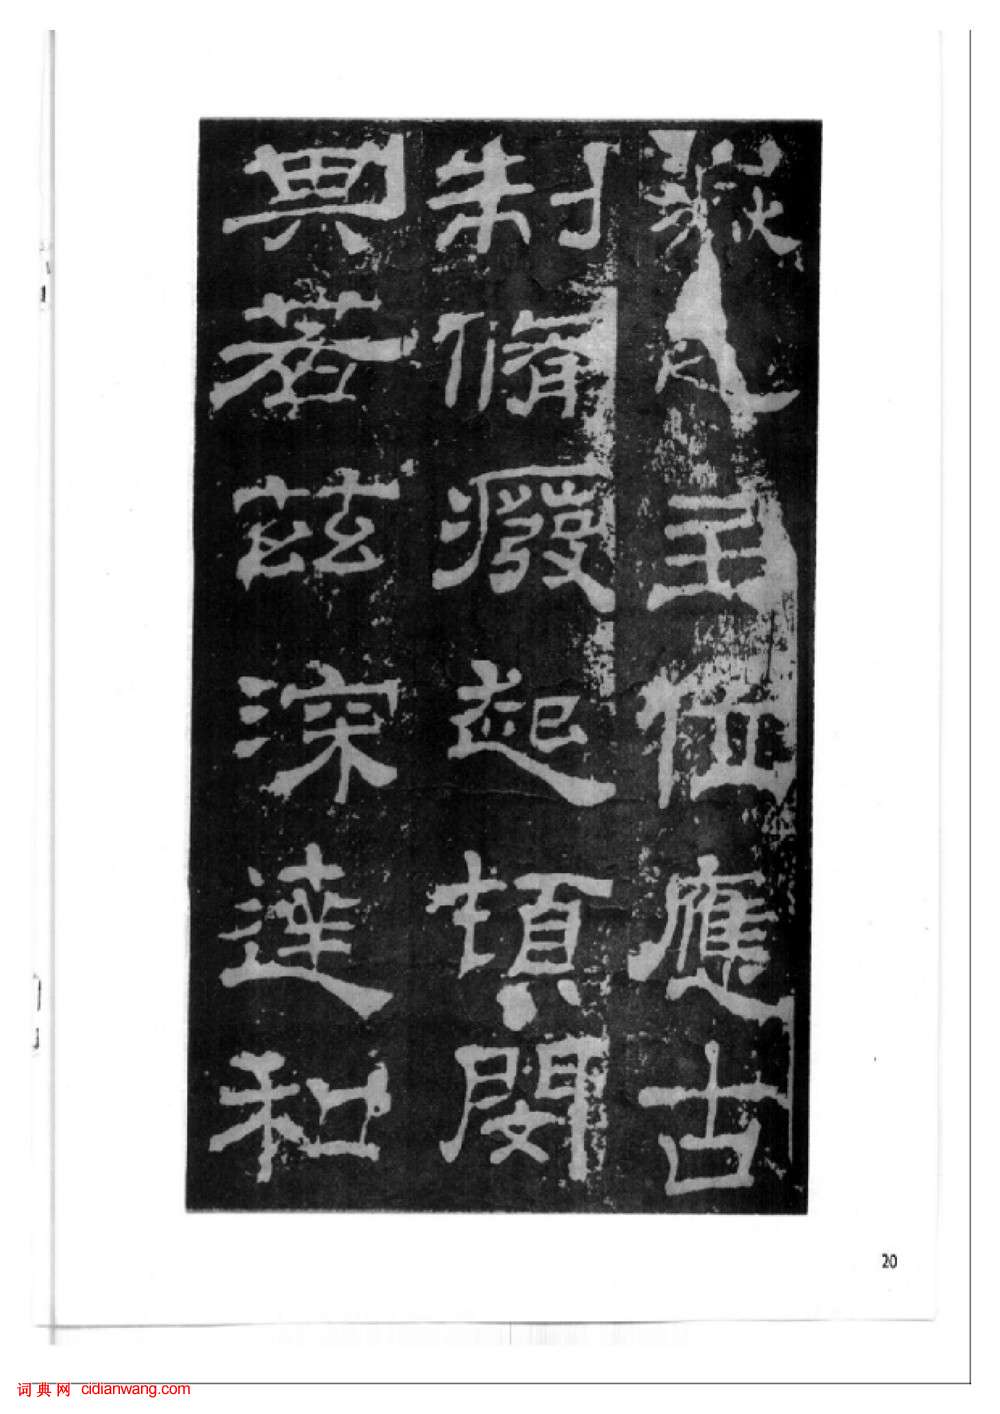 嶽之主位應古
制脩癈起頓閔
其若茲深達和
20
词典网 cidianwang.com